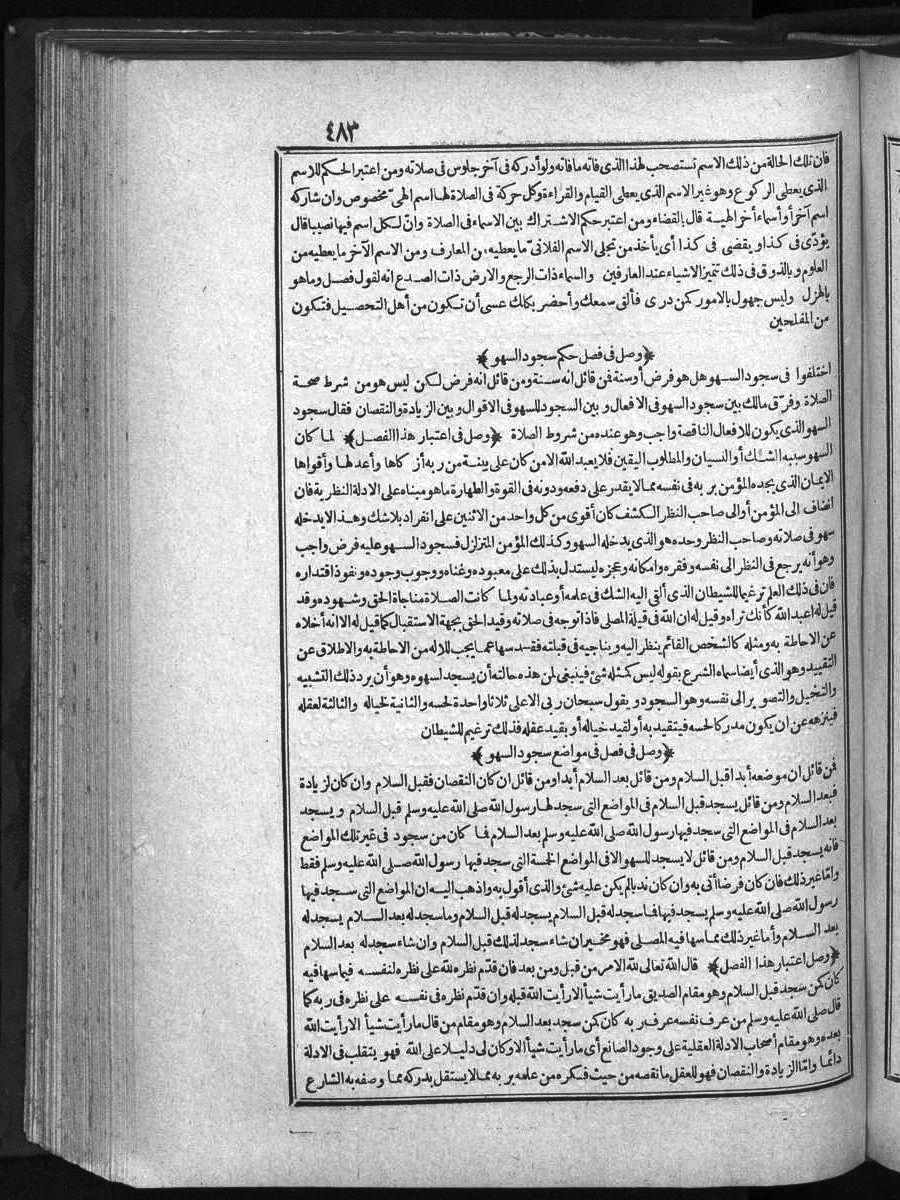 ٤٨٣
فان تلك الحالة من ذلك الاسم تستصحب لهذا الذى فاته مافاته ولو أدركه فى آخر جلوس فى صلاته ومن اعتبر الحكم للاسم
الذى يعطى الركوع وهو غير الاسم الذى يعطى القيام والقراءة وكل حركة فى الصلاة لها اسم الهىّ مخصوص وان شاركه
اسم آخر أو أسماء أخر الهية قال بالقضاء ومن اعتبر حكم الاشتراك بين الاسماء فى الصلاة وانّ لكل اسم فيها نصيبا قال
يؤدّى فى كذا ويقضى فى كذا أى يأخذ من تجلى الاسم الفلانىّ ما يعطيه من المعارف ومن الاسم الآخر ما يعطيه من
العلوم وبالذوق فى ذلك تتميز الاشياء عند العارفين والسماء ذات الرجع والارض ذات الصدع انه لقول فصل وما هو
بالهزل وليس جهول بالامور كمن درى فألق سمعك وأحضر بكلك عسى أن تكون من أهل التحصيل فتكون
من المفلحين
﴿وصل فى فصل حكم سجود السهو﴾
اختلفوا فى سجود السهو هل هو فرض أو سنة فمن قائل انه سنة ومن قائل انه فرض لكن ليس هو من شرط صحة
الصلاة وفرّق مالك بين سجود السهو فى الافعال وبين السجود للسهو فى الاقوال وبين الزيادة والنقصان فقال سجود
السهو الذى يكون للافعال الناقصة واجب وهو عنده من شروط الصلاة ﴿وصل فى اعتبار هذا الفصل﴾ لما كان
السهو سببه الشك أو النسيان والمطلوب اليقين فلا يعبد الله الامن كان على بينة من ربه أزكاها وأعدلها وأقواها
الايمان الذى يجده المؤمن بربه فى نفسه مما لا يقدر على دفعه ودونه فى القوة والطهارة ما هو مبناه على الادلة النظرية فان
انضاف الى المؤمن أو الى صاحب النظر الكشف كان أقوى من كل واحد من الاثنين على انفراد بلا شك وهذا لا يدخله
سهو فى صلاته وصاحب النظر وحده هو الذى يدخله السهو وكذلك المؤمن المتزلزل فسجود السهو عليه فرض واجب
وهو أنه يرجع فى النظر الى نفسه وفقره وامكانه وعجزه ليستدل بذلك على معبوده وغناه ووجوب وجوده ونفوذ اقتداره
فان فى ذلك العلم ترغيما للشيطان الذى ألقى اليه الشك فى علمه أو عبادته ولما كانت الصلاة مناجاة الحق وشهوده وقد
قيل له اعبد الله كأنك تراه وقيل له ان الله فى قبلة المصلى فاذا توجه فى صلاته وقيد الحق بجهة الاستقبال كما قيل له الا انه أخلاه
عن الاحاطة به ومثله كالشخص القائم ينظر اليه ويناجيه فى قبلته فقد سها عما يجب للاله من الاحاطة به والاطلاق عن
التقييد وهو الذى أيضا سماه الشرع بقوله ليس كمثله شئ فينبغى لمن هذه حالته أن يسجد لسهوه وهو أن يرد ذلك التشبيه
والتخيل والتصوير الى نفسه وهو السجود ويقول سبحان ربى الاعلى ثلاثا واحدة لحسه والثانية لخياله والثالثة لعقله
فينزهه عن ان يكون مدركا لحسه فيتقيد به أو لقيد خياله أو بقيد عقله فذلك ترغيم للشيطان
﴿وصل فى فصل فى مواضع سجود السهو﴾
فمن قائل ان موضعه أبدا قبل السلام ومن قائل بعد السلام أبدا ومن قائل ان كان النقصان فقبل السلام وان كان لزيادة
فبعد السلام ومن قائل يسجد قبل السلام فى المواضع التى سجد لها رسول الله صلى الله عليه وسلم قبل السلام ويسجد
بعد السلام فى المواضع التى سجد فيها رسول الله صلى الله عليه وسلم بعد السلام فما كان من سجود فى غير تلك المواضع
فانه يسجد قبل السلام ومن قائل لا يسجد للسهو الا فى المواضع الخمسة التى سجد فيها رسول الله صلى الله عليه وسلم فقط
وامّا غير ذلك فان كان فرضا أتى به وان كان ندبا لم يكن عليه شئ والذى أقول به واذهب اليه ان المواضع التى سجد فيها
رسول الله صلى الله عليه وسلم يسجد فيها فما سجد له قبل السلام يسجد له قبل السلام وما سجد له بعد السلام يسجد له
بعد السلام وأما غير ذلك مما سها فيه المصلى فهو مخير ان شاء سجد لذلك قبل السلام وان شاء سجد له بعد السلام
﴿وصل اعتبار هذا الفصل﴾ قال الله تعالى لله الامر من قبل ومن بعد فان قدّم نظره لله على نظره لنفسه فيما سها فيه
كان كمن سجد قبل السلام وهو مقام الصديق ما رأيت شيأ الا رأيت الله قبله وان قدّم نظره فى نفسه على نظره فى ربه كما
قال صلى الله عليه وسلم من عرف نفسه عرف ربه كان كمن سجد بعد السلام وهو مقام من قال ما رأيت شيأ الا رأيت الله
بعده وهو مقام أصحاب الادلة العقلية على وجود الصانع أى ما رأيت شيأ الا وكان لى دليلا على الله فهو يتقلب فى الادلة
دائما وامّا الزيادة والنقصان فهو للعقل ما نقصه من حيث فكره من علمه بربه مما لا يستقل بدركه مما وصفه به الشارع